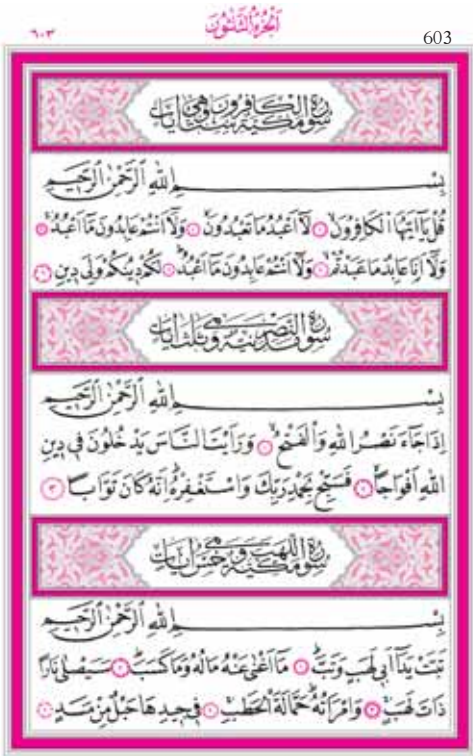 ٦٠٣ اَلْجُزْءُ الثَّلٰثُونَ 603
سُورَةُ الْكَافِرُونَ مَكِّيَّةٌ وَهِيَ سِتُّ اٰيَاتٍ
بِسْــــــمِ اللهِ الرَّحْمٰنِ الرَّحِيمِ
قُلْ يَٓا اَيُّهَا الْكَافِرُونَۙ ١ لَٓا اَعْبُدُ مَا تَعْبُدُونَۙ ٢ وَلَٓا اَنْتُمْ عَابِدُونَ مَٓا اَعْبُدُۚ ٣
وَلَٓا اَنَا۬ عَابِدٌ مَا عَبَدْتُمْۙ ٤ وَلَٓا اَنْتُمْ عَابِدُونَ مَٓا اَعْبُدُۜ ٥ لَكُمْ دِينُكُمْ وَلِيَ دِينِ ٦
سُورَةُ النَّصْرِ مَدَنِيَّةٌ وَهِيَ ثَلٰثُ اٰيَاتٍ
بِسْــــــمِ اللهِ الرَّحْمٰنِ الرَّحِيمِ
اِذَا جَٓاءَ نَصْرُ اللهِ وَالْفَتْحُۙ ١ وَرَاَيْتَ النَّاسَ يَدْخُلُونَ فِي دِينِ
اللهِ اَفْوَاجًاۙ ٢ فَسَبِّحْ بِحَمْدِ رَبِّكَ وَاسْتَغْفِرْهُۜ اِنَّهُ كَانَ تَوَّابًا ٣
سُورَةُ اللَّهَبِ مَكِّيَّةٌ وَهِيَ خَمْسُ اٰيَاتٍ
بِسْــــــمِ اللهِ الرَّحْمٰنِ الرَّحِيمِ
تَبَّتْ يَدَٓا اَبِي لَهَبٍ وَتَبَّۜ ١ مَٓا اَغْنٰى عَنْهُ مَالُهُ وَمَا كَسَبَۜ ٢ سَيَصْلٰى نَارًا
ذَاتَ لَهَبٍۚ ٣ وَامْرَاَتُهُۜ حَمَّالَةَ الْحَطَبِۚ ٤ فِي جِيدِهَا حَبْلٌ مِنْ مَسَدٍ ٥